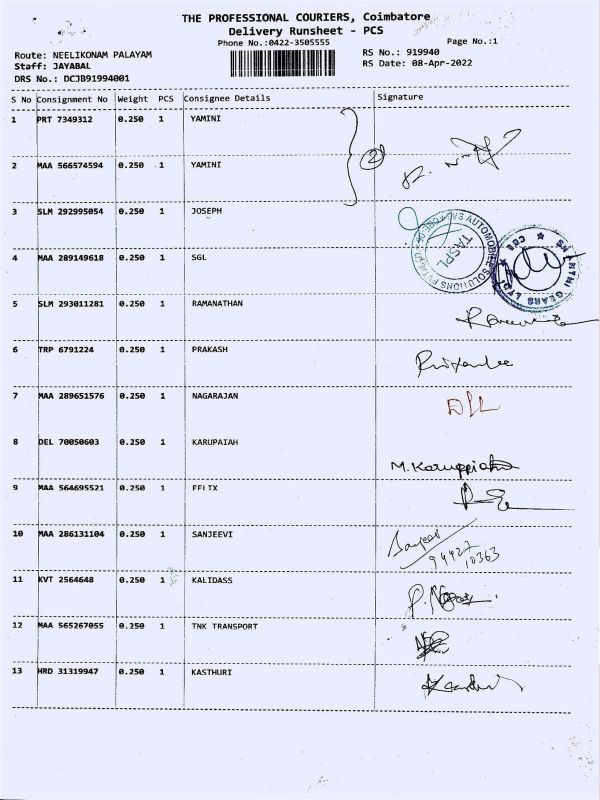 THE PROFESSIONAL COURIERS, Coimbatore
Delivery Runsheet - PCS
Phone No.:0422-3505555
Page No.:1
Route: NEELIKONAM PALAYAM
RS No.: 919940
Staff: JAYABAL
RS Date: 08-Apr-2022
DRS No.: DCJB91994001
S No Consignment No Weight PCS Consignee Details Signature
1 PRT 7349312 0.250 1 YAMINI
2
2 MAA 566574594 0.250 1 YAMINI
3 SLM 292995054 0.250 1 JOSEPH
TASPL
4 MAA 289149618 0.250 1 SGL
5 SLM 293011281 0.250 1 RAMANATHAN
6 TRP 6791224 0.250 1 PRAKASH
7 MAA 289651576 0.250 1 NAGARAJAN
8 DEL 70050603 0.250 1 KARUPAIAH
M.Karuppiah
9 MAA 564695521 0.250 1 FELIX
10 MAA 286131104 0.250 1 SANJEEVI
94427
10363
11 KVT 2564648 0.250 1 KALIDASS
12 MAA 565267055 0.250 1 TNK TRANSPORT
13 HRD 31319947 0.250 1 KASTHURI